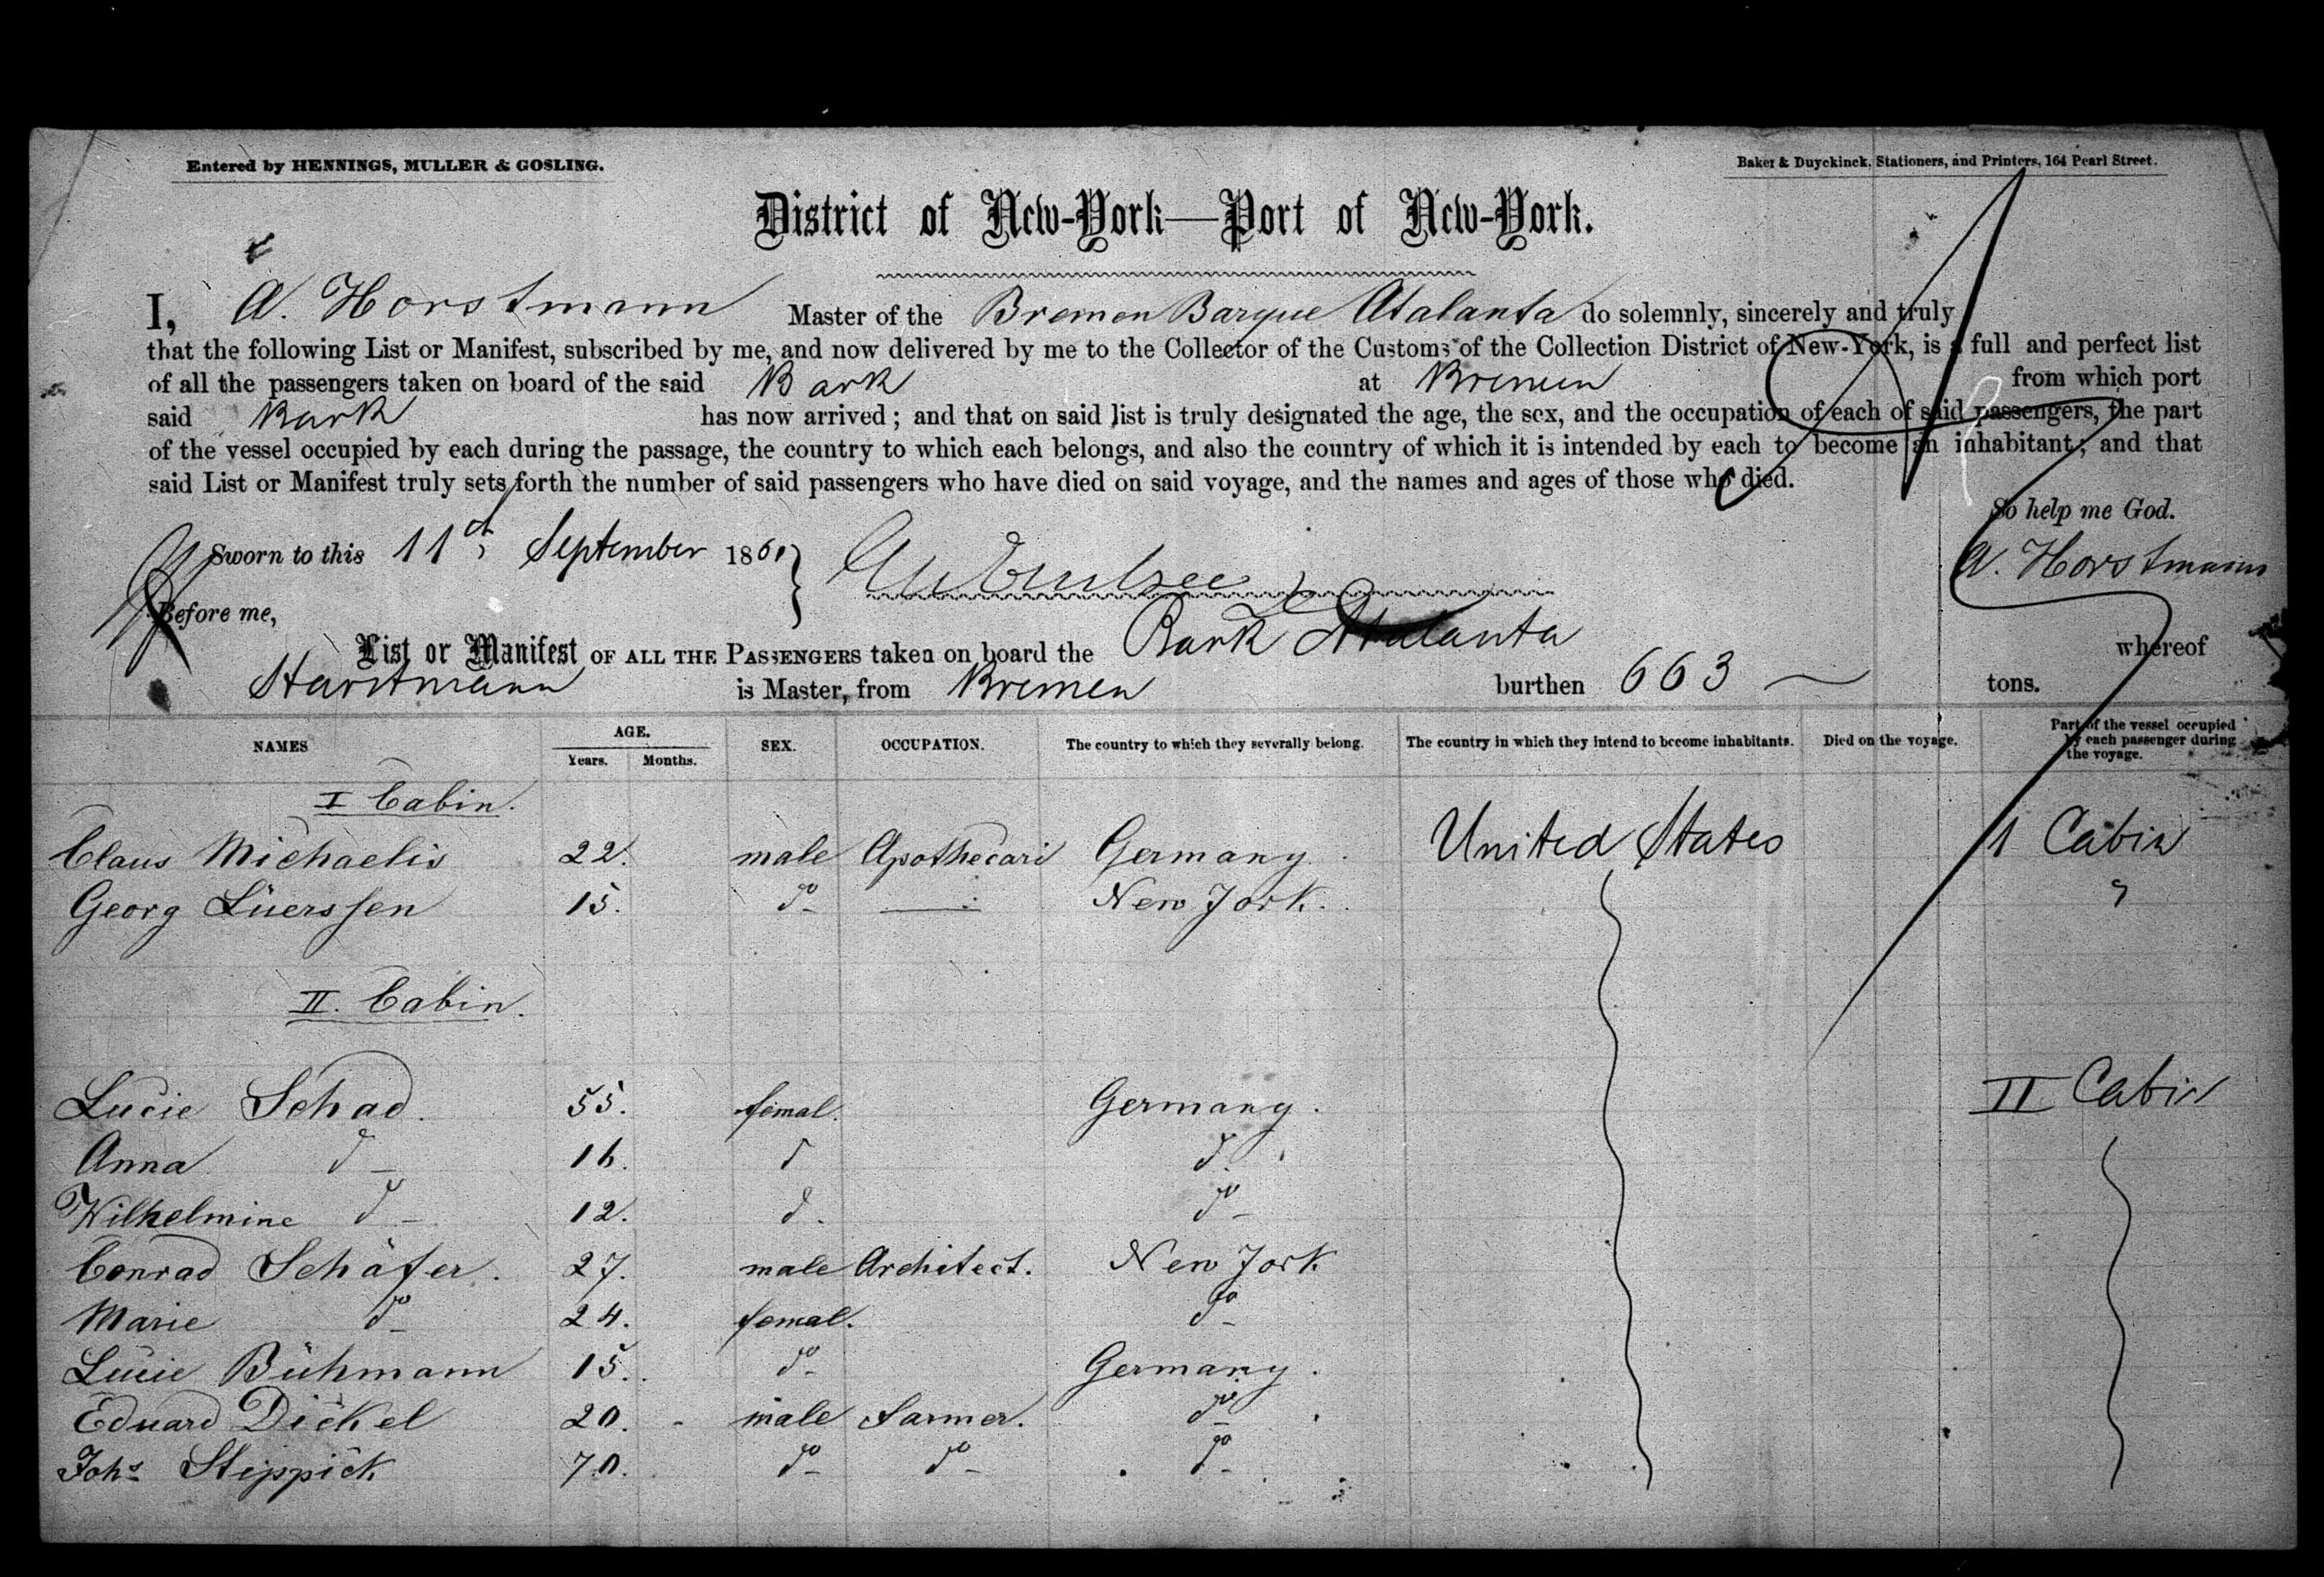 Entered by HENNINGS, MULLER & GOSLING.
Baker & Duyckinck, Stationers, and Printers, 164 Pearl Street.
District of New-York—Port of New-York.
I, A. Horstmann Master of the Bremen Barque Atalanta do solemnly, sincerely and truly
that the following List or Manifest, subscribed by me, and now delivered by me to the Collector of the Customs of the Collection District of New-York, is a full and perfect list
of all the passengers taken on board of the said Bark at Bremen from which port
said Bark has now arrived; and that on said list is truly designated the age, the sex, and the occupation of each of said passengers, the part
of the vessel occupied by each during the passage, the country to which each belongs, and also the country of which it is intended by each to become an inhabitant; and that
said List or Manifest truly sets forth the number of said passengers who have died on said voyage, and the names and ages of those who died.
So help me God.
Sworn to this 11th September 1860
A. Horstmann
Before me,
List or Manifest OF ALL THE PASSENGERS taken on board the Bark Atalanta whereof
Horstmann is Master, from Bremen burthen 663 — tons.
NAMES AGE. Years. Months. SEX. OCCUPATION. The country to which they severally belong. The country in which they intend to become inhabitants. Died on the voyage. Part of the vessel occupied by each passenger during the voyage.
I Cabin.
Claus Michaelis 22. male Apothecari Germany United States 1 Cabin
Georg Lüerssen 15. do — New York. "
II. Cabin.
Lucie Schad. 55. femal. Germany. II Cabin
Anna do 16. do do
Wilhelmine do 12. do. do
Conrad Schäfer. 27. male Architect. New York
Marie do 24. femal. do
Lucie Bühmann 15. do Germany.
Eduard Dickel 20. male Farmer. do
Johs Steppick 70. do do do